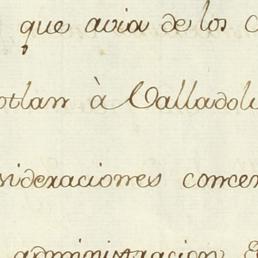 que avia de los c
otlan à Valladoli
sideraciones concer
administracion